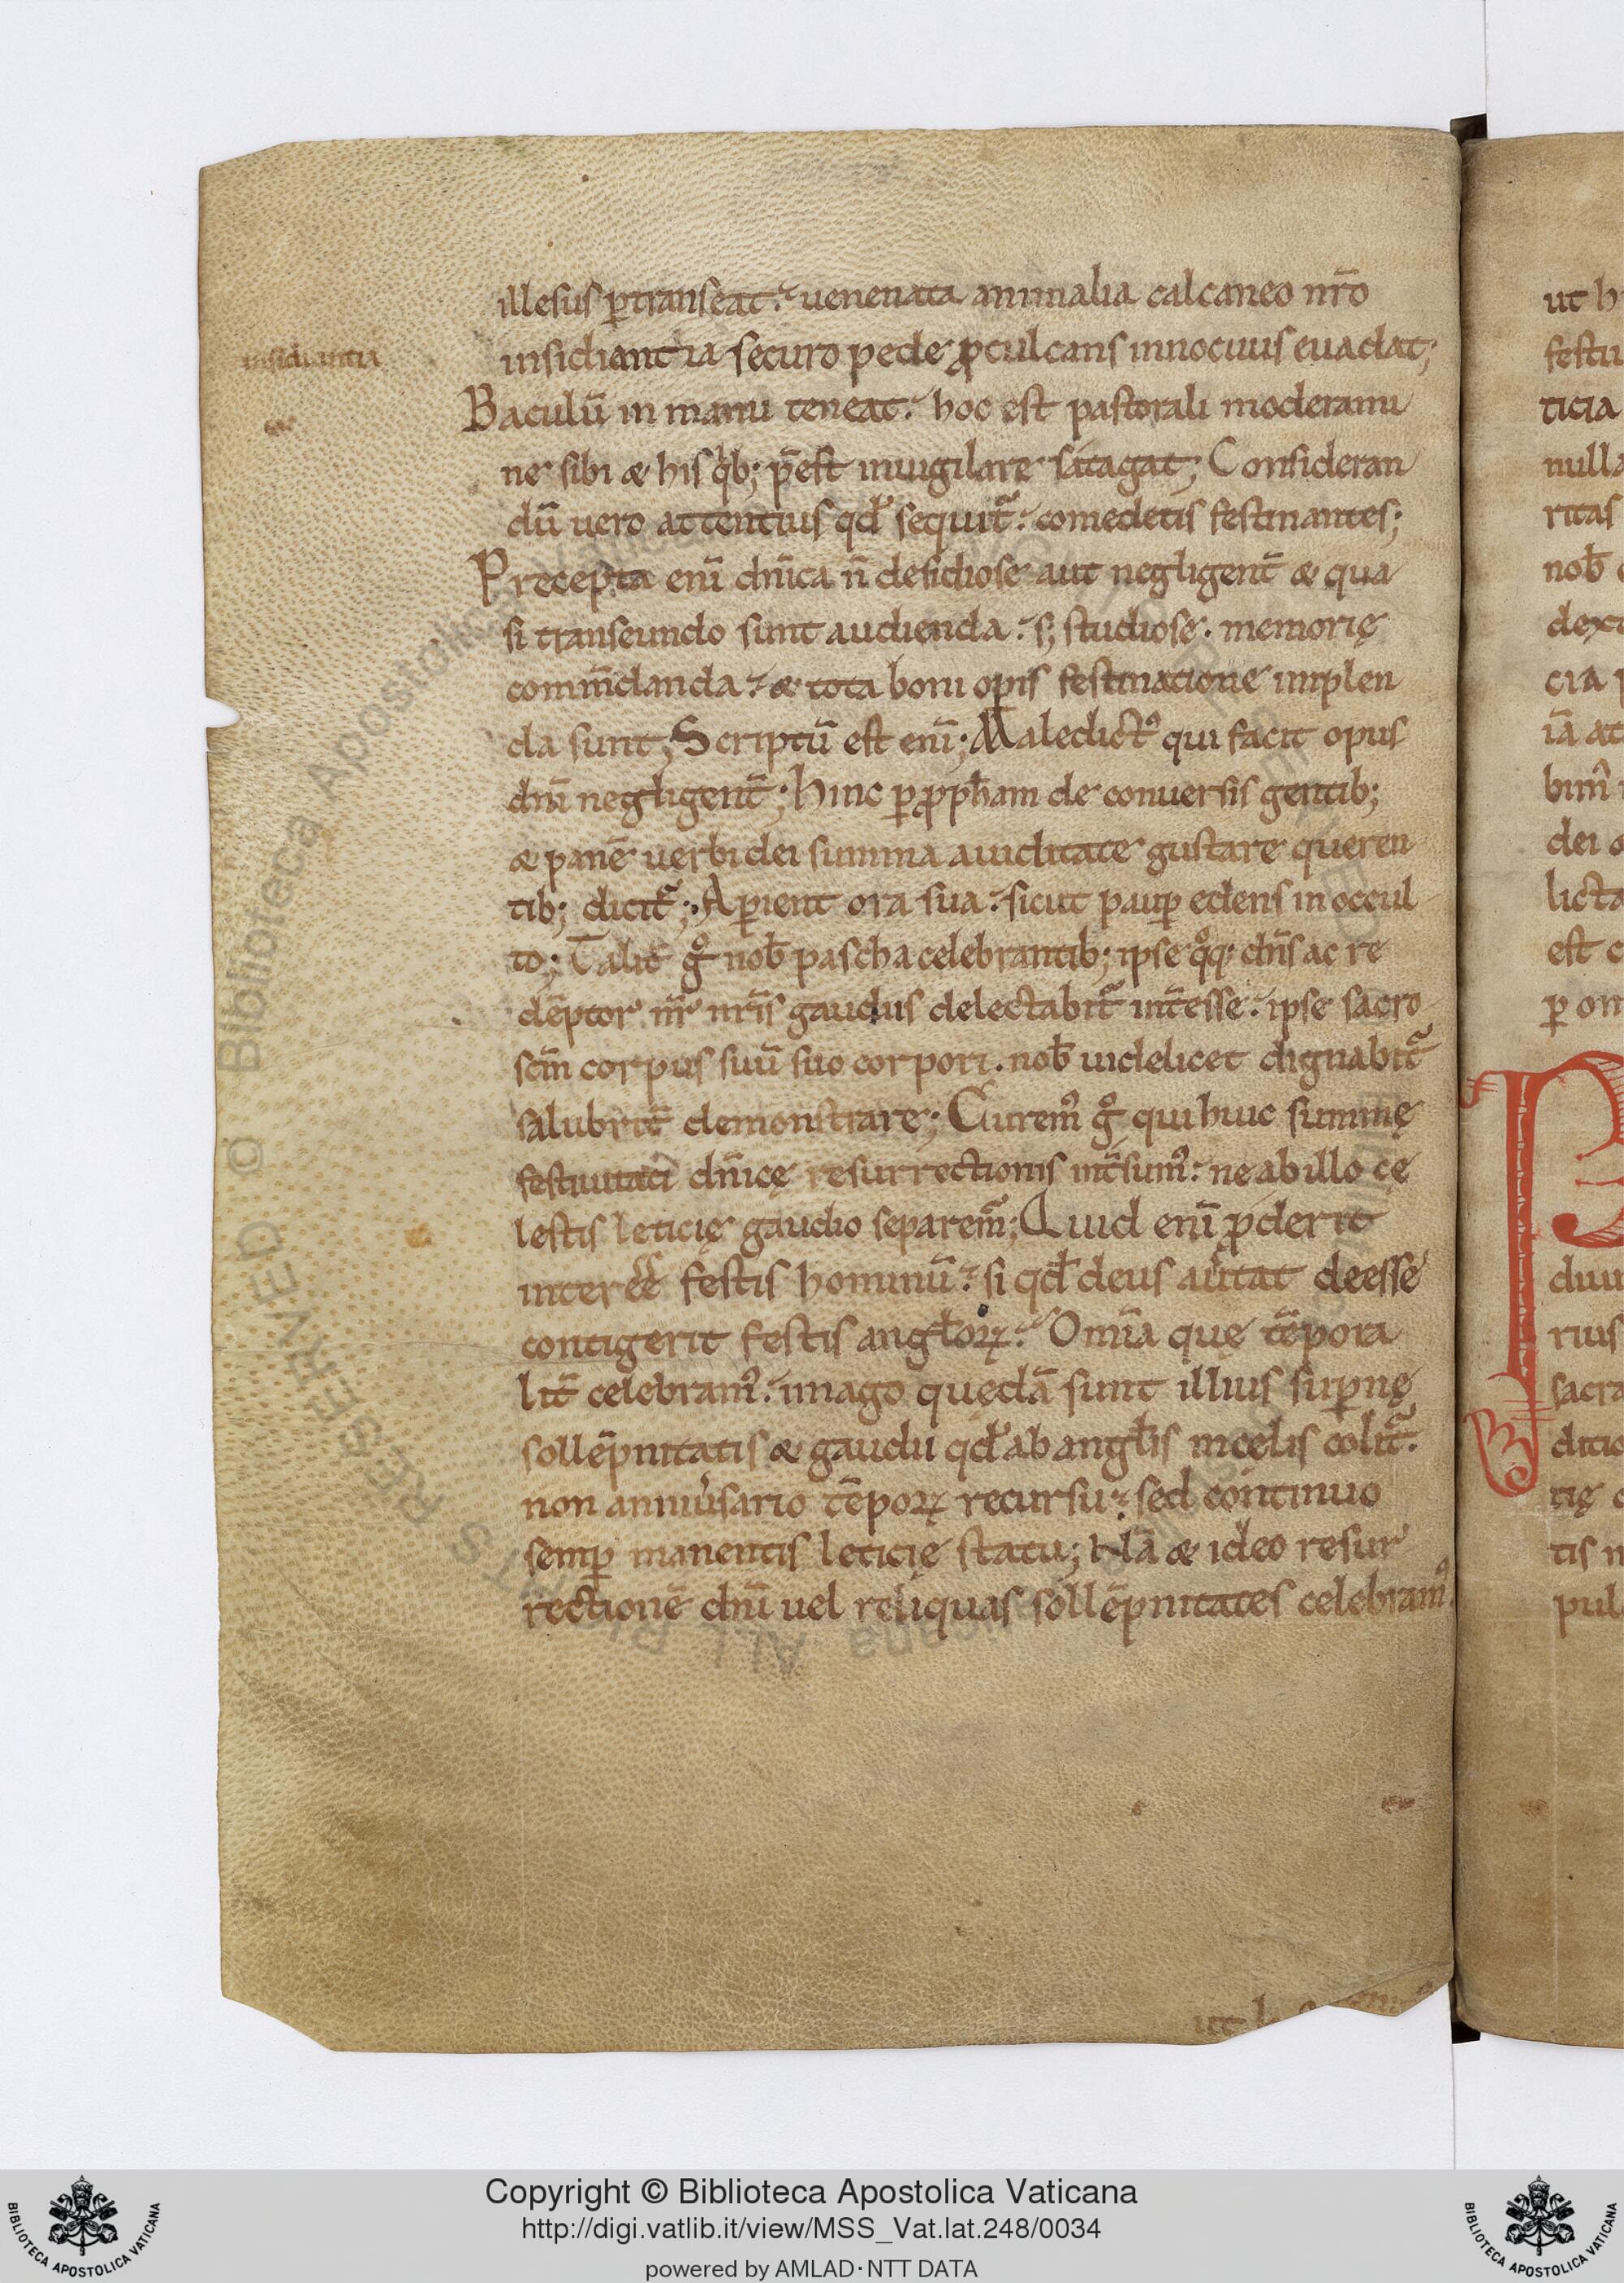 illesus ꝑtranseat. uenenata animalia calcaneo nr̄o
insidiantia
insidiantia securo pede ꝓculcans innocuus euadat;
Baculū in manu teneat. hoc est pastorali moderami
ne sibi & his qͥb; p̄est inuigilare satagat; Consideran
dū uero attentius qd̄ sequit᷑. comedetis festinantes;
Precepta enī dn̄ica n̄ desidiose aut negligent̄ & qua
si transeundo sunt audienda. s; studiose. memorię
comm̄danda. & tota boni oꝑis festinatione implen
da sunt; Scriptū est enī; Maledictꝰ qui facit opus
dn̄i negligent̄; Hinc ꝑ ꝓpham de conuersis gentib;
& panē uerbi dei summa auiditate gustare queren
tib; dicit᷑; Aꝑient ora sua. sicut pauꝑ edens in occul
to; Talit̄ gͦ nob̄ pascha celebrantib; ipse qͦq; dn̄s ac re
dēptor nr̄ nr̄is gaudiis delectabit᷑ int̄esse. ipse sacro
sc̄m corpus suū suo corpori. nob̄ uidelicet dignabit᷑
salubrit̄ demonstrare; Curemꝰ gͦ qui huic summę
festiuitati dn̄icę resurrectionis int̄sumꝰ. ne ab illo cę
lestis leticię gaudio separem᷑; Quid enī ꝓderit
interēē festis hominū. si qd̄ deus au̓tat deesse
contigerit festis angl̄oꝝ. Omīa quę tēpora
lit̄ celebramꝰ. imago quędā sunt illius suꝑnę
sollēpnitatis & gaudii qd̄ ab angl̄is in celis colit᷑.
non anniu̓sario tēpoꝝ recursu. sed continuo
semꝑ manentis leticię statu; Nā & ideo resur
rectionē dn̄i uel reliquas sollēpnitates celebramꝰ.
ut h
festiu
ticia
nulla
ritas
nob̄
cia
iā at
bimꝰ
dei
licta
est c
ꝑ om
P
diui
rius
sacra
ditio
tię
tis n
pul
Copyright © Biblioteca Apostolica Vaticana
http://digi.vatlib.it/view/MSS_Vat.lat.248/0034
powered by AMLAD·NTT DATA
BIBLIOTECA APOSTOLICA VATICANA
BIBLIOTECA APOSTOLICA VATICANA